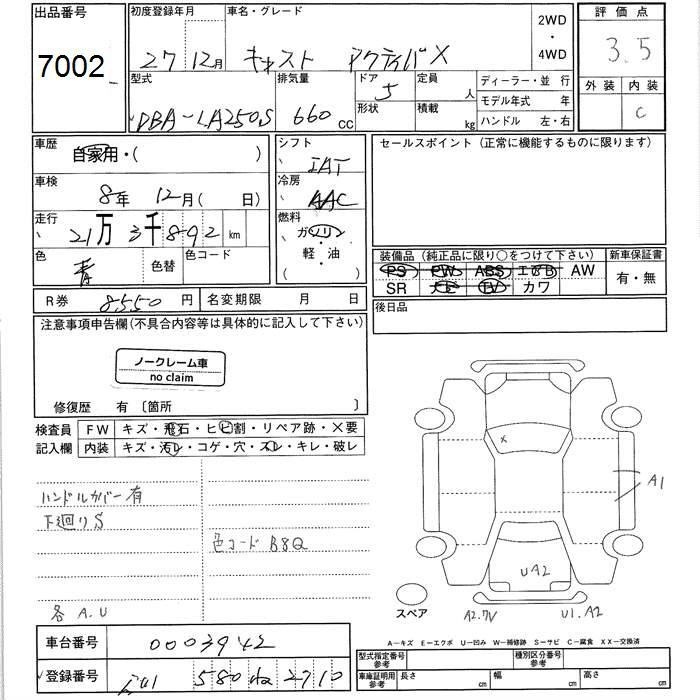 出品番号
7002
初度登録年月
27 12月
車名・グレード
キャスト アクティバX
2WD
・
4WD
評価点
3.5
外装 内装
C
型式
DBA-LA250S
排気量
660 CC
ドア
5
形状
定員
人
積載
kg
ディーラー・並 行
モデル年式 年
ハンドル 左・右
車歴
自家用・( )
車検
8年 12月( 日)
走行
21万 3千892 km
色
青
色替
色コード
シフト
IAT
冷房
AAC
燃料
ガソリン
・
軽・油
セールスポイント (正常に機能するものに限ります)
装備品 (純正品に限り○をつけて下さい)
PS PW ABS エアB AW
SR ナビ TV カワ
新車保証書
有・無
R券 8550 円
名変期限 月 日
後日品
注意事項申告欄(不具合内容等は具体的に記入して下さい)
ノークレーム車
no claim
修復歴 有 〔箇所 〕
検査員
記入欄
FW キズ・飛石・ヒビ割・リペア跡・×要
内装 キズ・汚レ・コゲ・穴・スレ・キレ・破レ
ハンドルカバー有
下廻りS
色コード B8Q
各 A.U
×
A1
UA2
スペア
A2.
U1.A2
A-キズ E-エクボ U-凹み W-補修跡 S-サビ C-腐食 XX-交換済
車台番号 0003942
登録番号 580 2710
型式指定番号
参考
種別区分番号
参考
車庫証明用
参考
長さ cm
幅 cm
高さ cm